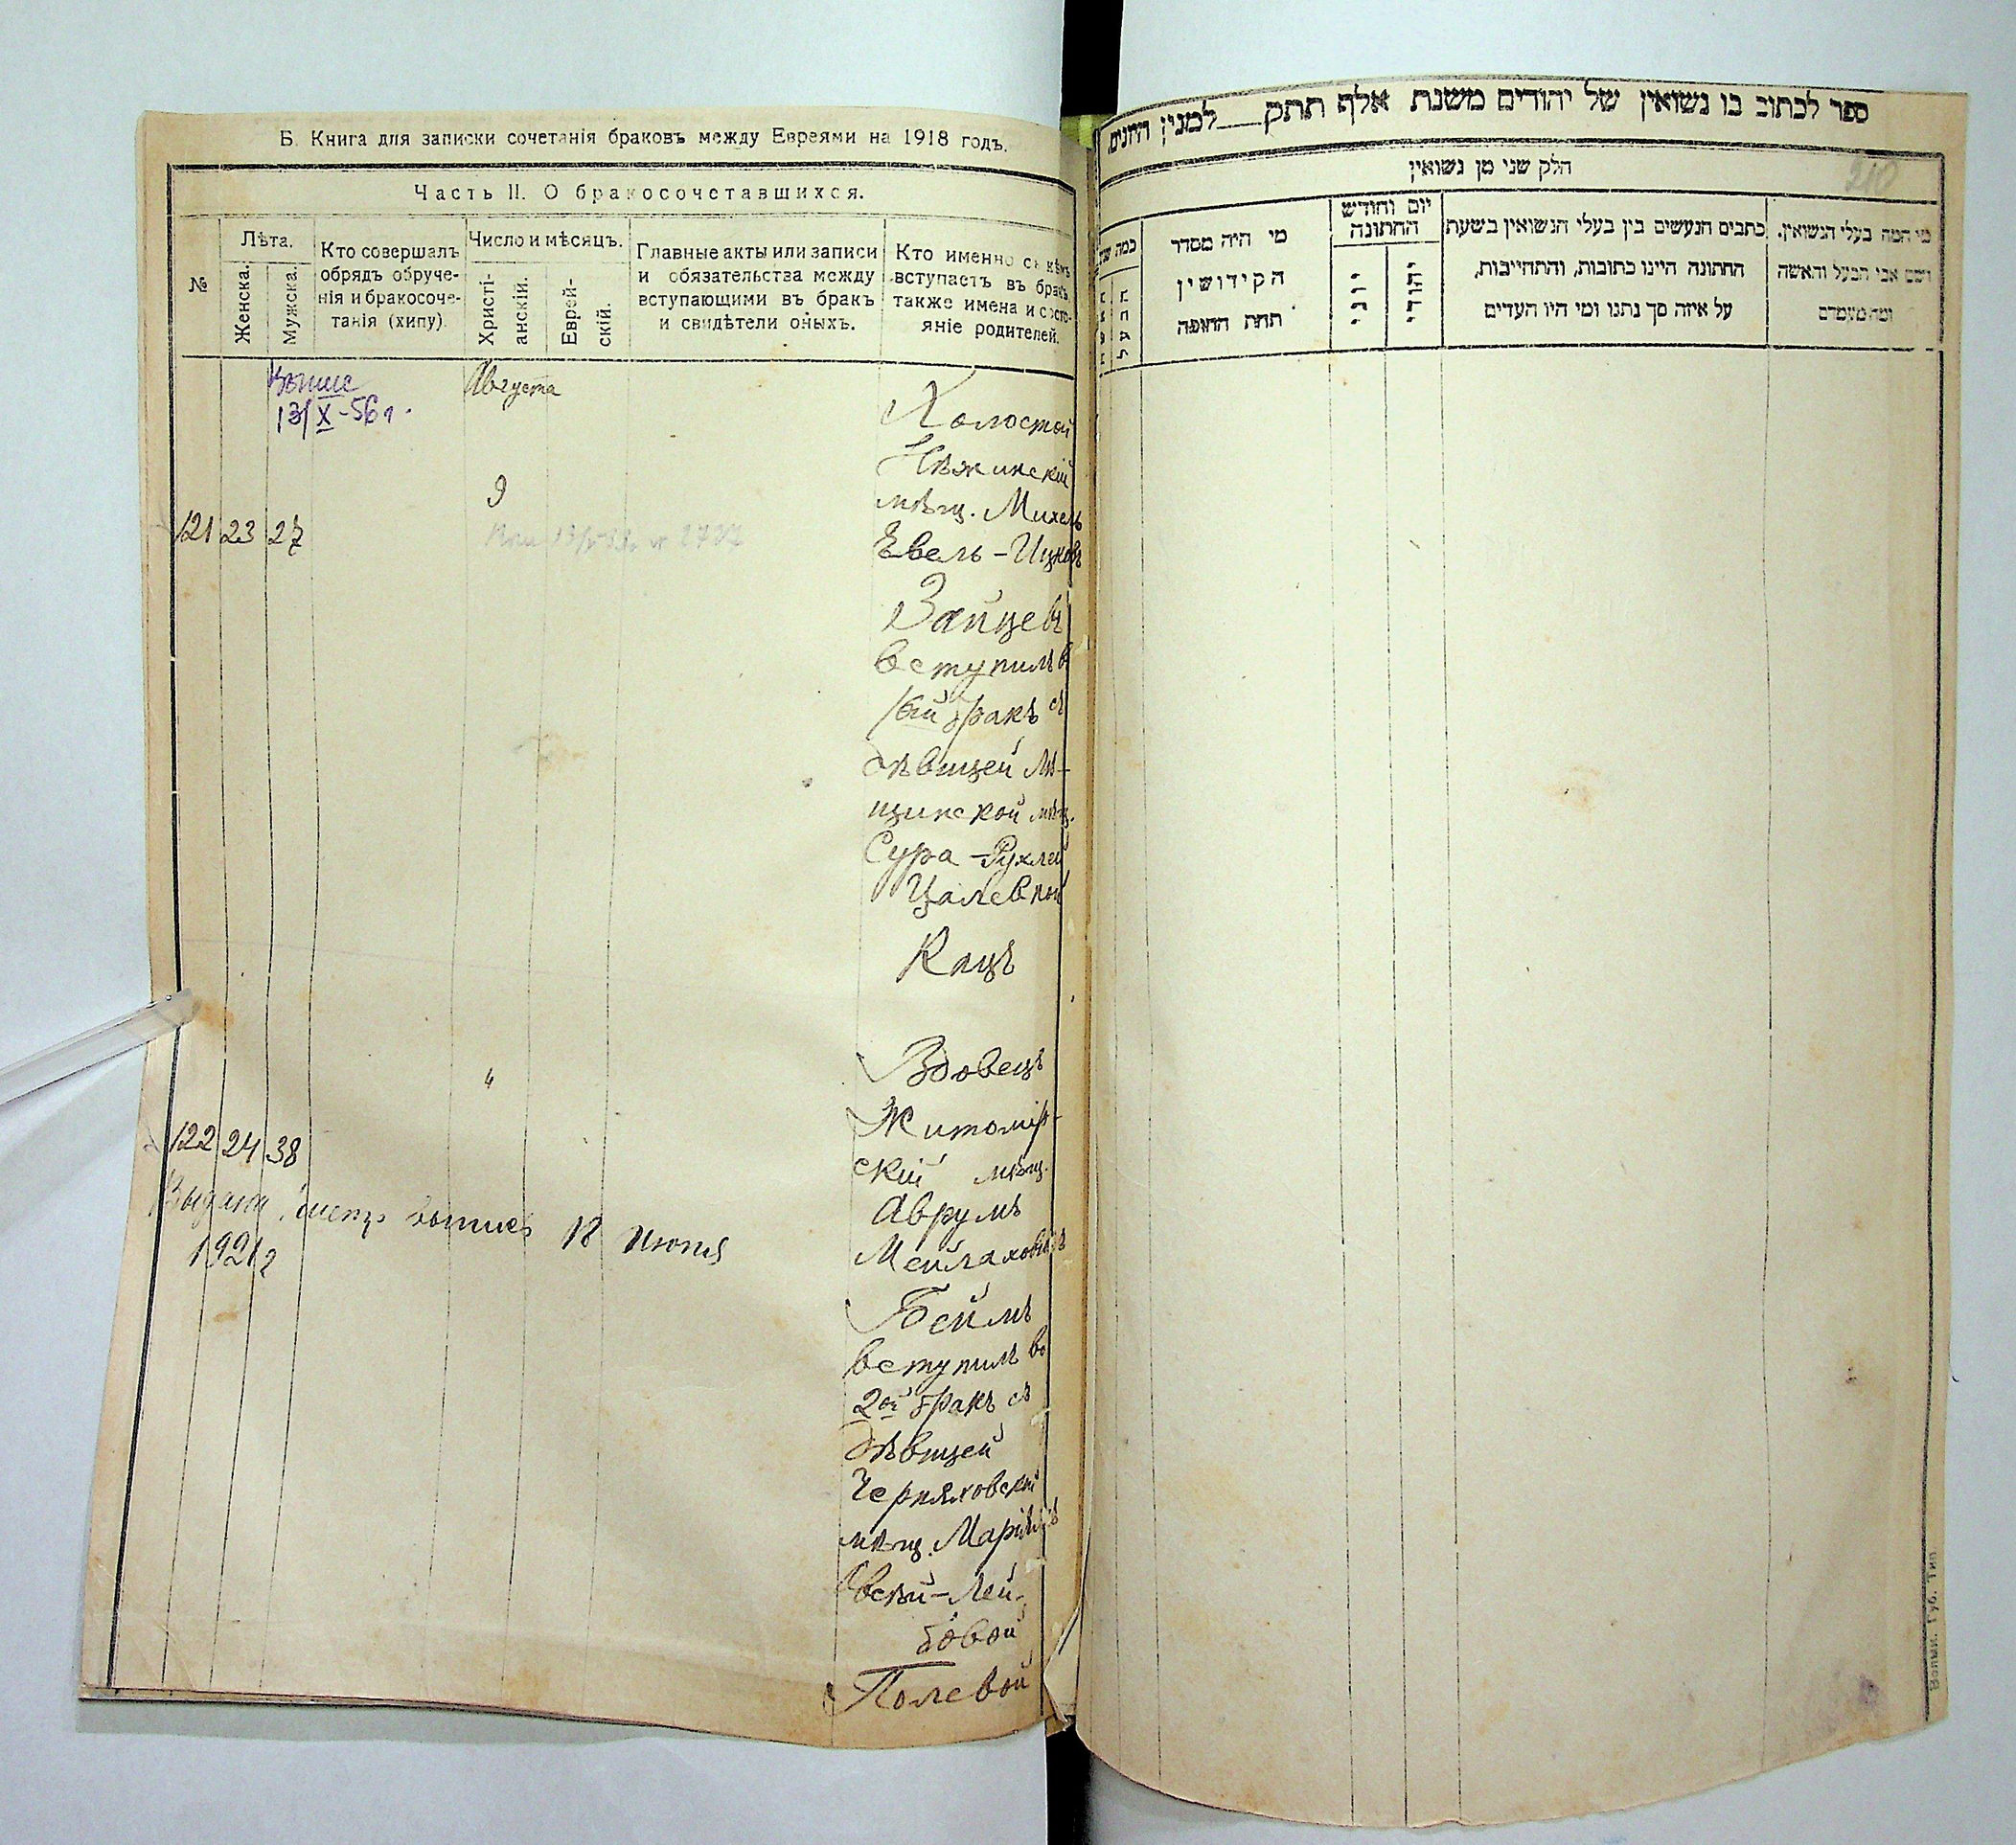 Б. Книга для записки сочетанія браковъ между Евреями на 1918 годъ.
Часть II. О бракосочетавшихся.
№
Лѣта.
Женска.
Мужска.
Кто совершалъ
обрядъ обруче-
нія и бракосоче-
танія (хипу).
Число и мѣсяцъ.
Христі-
анскій.
Еврей-
скій.
Главные акты или записи
и обязательства между
вступающими въ бракъ
и свидѣтели оныхъ.
Кто именно съ кѣмъ
вступаетъ въ бракъ,
также имена и состо-
яніе родителей.
13/X-56 г.
Августа
9
121 23 27
Холостой
Нѣжинскій
мѣщ. Михель
Евель-Ицковъ
Зайцевъ
вступилъ въ
1ый бракъ съ
дѣвицей
мѣщ.
Сура-Рухлей
Цалевной
Кацъ
"
122 24 38
18 Июня
1921 г
Вдовецъ
Житомір-
скій мѣщ.
Аврумъ
Мейлаховичъ
Беймъ
вступилъ во
2ой бракъ съ
дѣвицей
Черняховской
мѣщ.
Лей-
бовой
Полевой
ספר לכתוב בו נשואין של יהודים משנת אלף תתק___למנין היונים,
210
חלק שני מן נשואין
כמה
מי היה מסדר
הקידושין
תחת החופה
יום וחודש
החתונה
יוני
יהודי
כתבים הנעשים בין בעלי הנשואין בשעת
החתונה היינו כתובות, והתחייבות,
על איזה סך נתנו ומי היו העדים
מי המה בעלי הנשואין,
ושם אבי הבעל והאשה
ומה מעמדם
Волын. Губ. Тип.